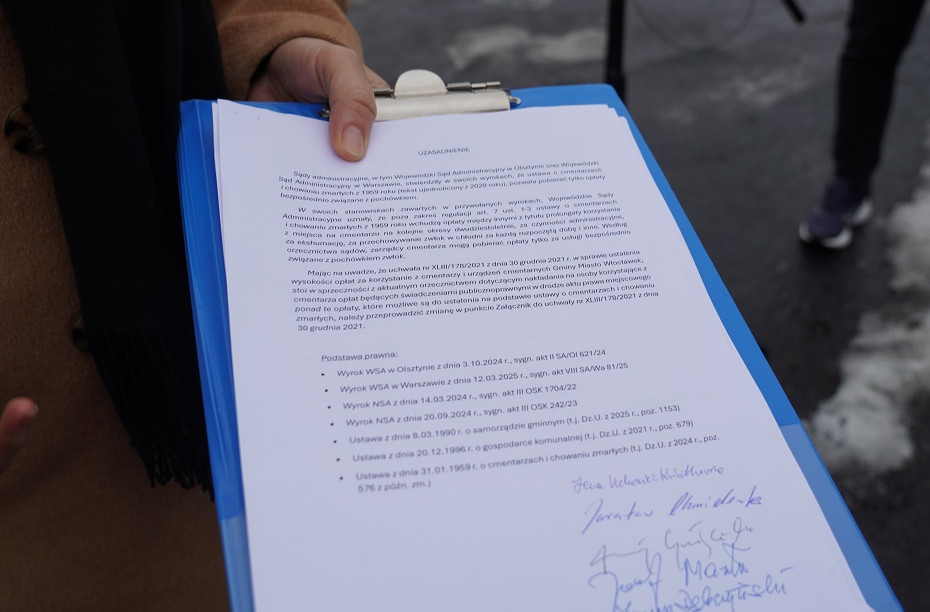 UZASADNIENIE
Sądy administracyjne, w tym Wojewódzki Sąd Administracyjny w Olsztynie oraz Wojewódzki
Sąd Administracyjny w Warszawie, stwierdziły w swoich wyrokach, że ustawa o cmentarzach
i chowaniu zmarłych z 1959 roku (tekst ujednolicony z 2020 roku), pozwala pobierać tylko opłaty
bezpośrednio związane z pochówkiem.
W swoich stanowiskach zawartych w przywołanych wyrokach, Wojewódzkie Sądy
Administracyjne uznały, że poza zakres regulacji art. 7 ust. 1-3 ustawy o cmentarzach
i chowaniu zmarłych z 1959 roku wchodzą opłaty między innymi z tytułu prolongaty korzystania
z miejsca na cmentarzu na kolejne okresy dwudziestoletnie, za czynności administracyjne,
za ekshumację, za przechowywanie zwłok w chłodni za każdą rozpoczętą dobę i inne. Według
orzecznictwa sądów, zarządcy cmentarza mogą pobierać opłaty tylko za usługi bezpośrednio
związane z pochówkiem zwłok.
Mając na uwadze, że uchwała nr XLIII/178/2021 z dnia 30 grudnia 2021 r. w sprawie ustalenia
wysokości opłat za korzystanie z cmentarzy i urządzeń cmentarnych Gminy Miasto Włocławek,
stoi w sprzeczności z aktualnym orzecznictwem dotyczącym nakładania na osoby korzystające z
cmentarza opłat będących świadczeniami publicznoprawnymi w drodze aktu prawa miejscowego
ponad te opłaty, które możliwe są do ustalenia na podstawie ustawy o cmentarzach i chowaniu
zmarłych, należy przeprowadzić zmianę w punkcie Załącznik do uchwały nr XLIII/178/2021 z dnia
30 grudnia 2021.
Podstawa prawna:
• Wyrok WSA w Olsztynie z dnia 3.10.2024 r., sygn. akt II SA/Ol 621/24
• Wyrok WSA w Warszawie z dnia 12.03.2025 r., sygn. akt VIII SA/Wa 81/25
• Wyrok NSA z dnia 14.03.2024 r., sygn. akt III OSK 1704/22
• Wyrok NSA z dnia 20.09.2024 r., sygn. akt III OSK 242/23
• Ustawa z dnia 8.03.1990 r. o samorządzie gminnym (t.j. Dz.U. z 2025 r., poz. 1153)
• Ustawa z dnia 20.12.1996 r. o gospodarce komunalnej (t.j. Dz.U. z 2021 r., poz. 679)
• Ustawa z dnia 31.01.1959 r. o cmentarzach i chowaniu zmarłych (t.j. Dz.U. z 2024 r., poz.
576 z późn. zm.)
Jarosław Chmielewski